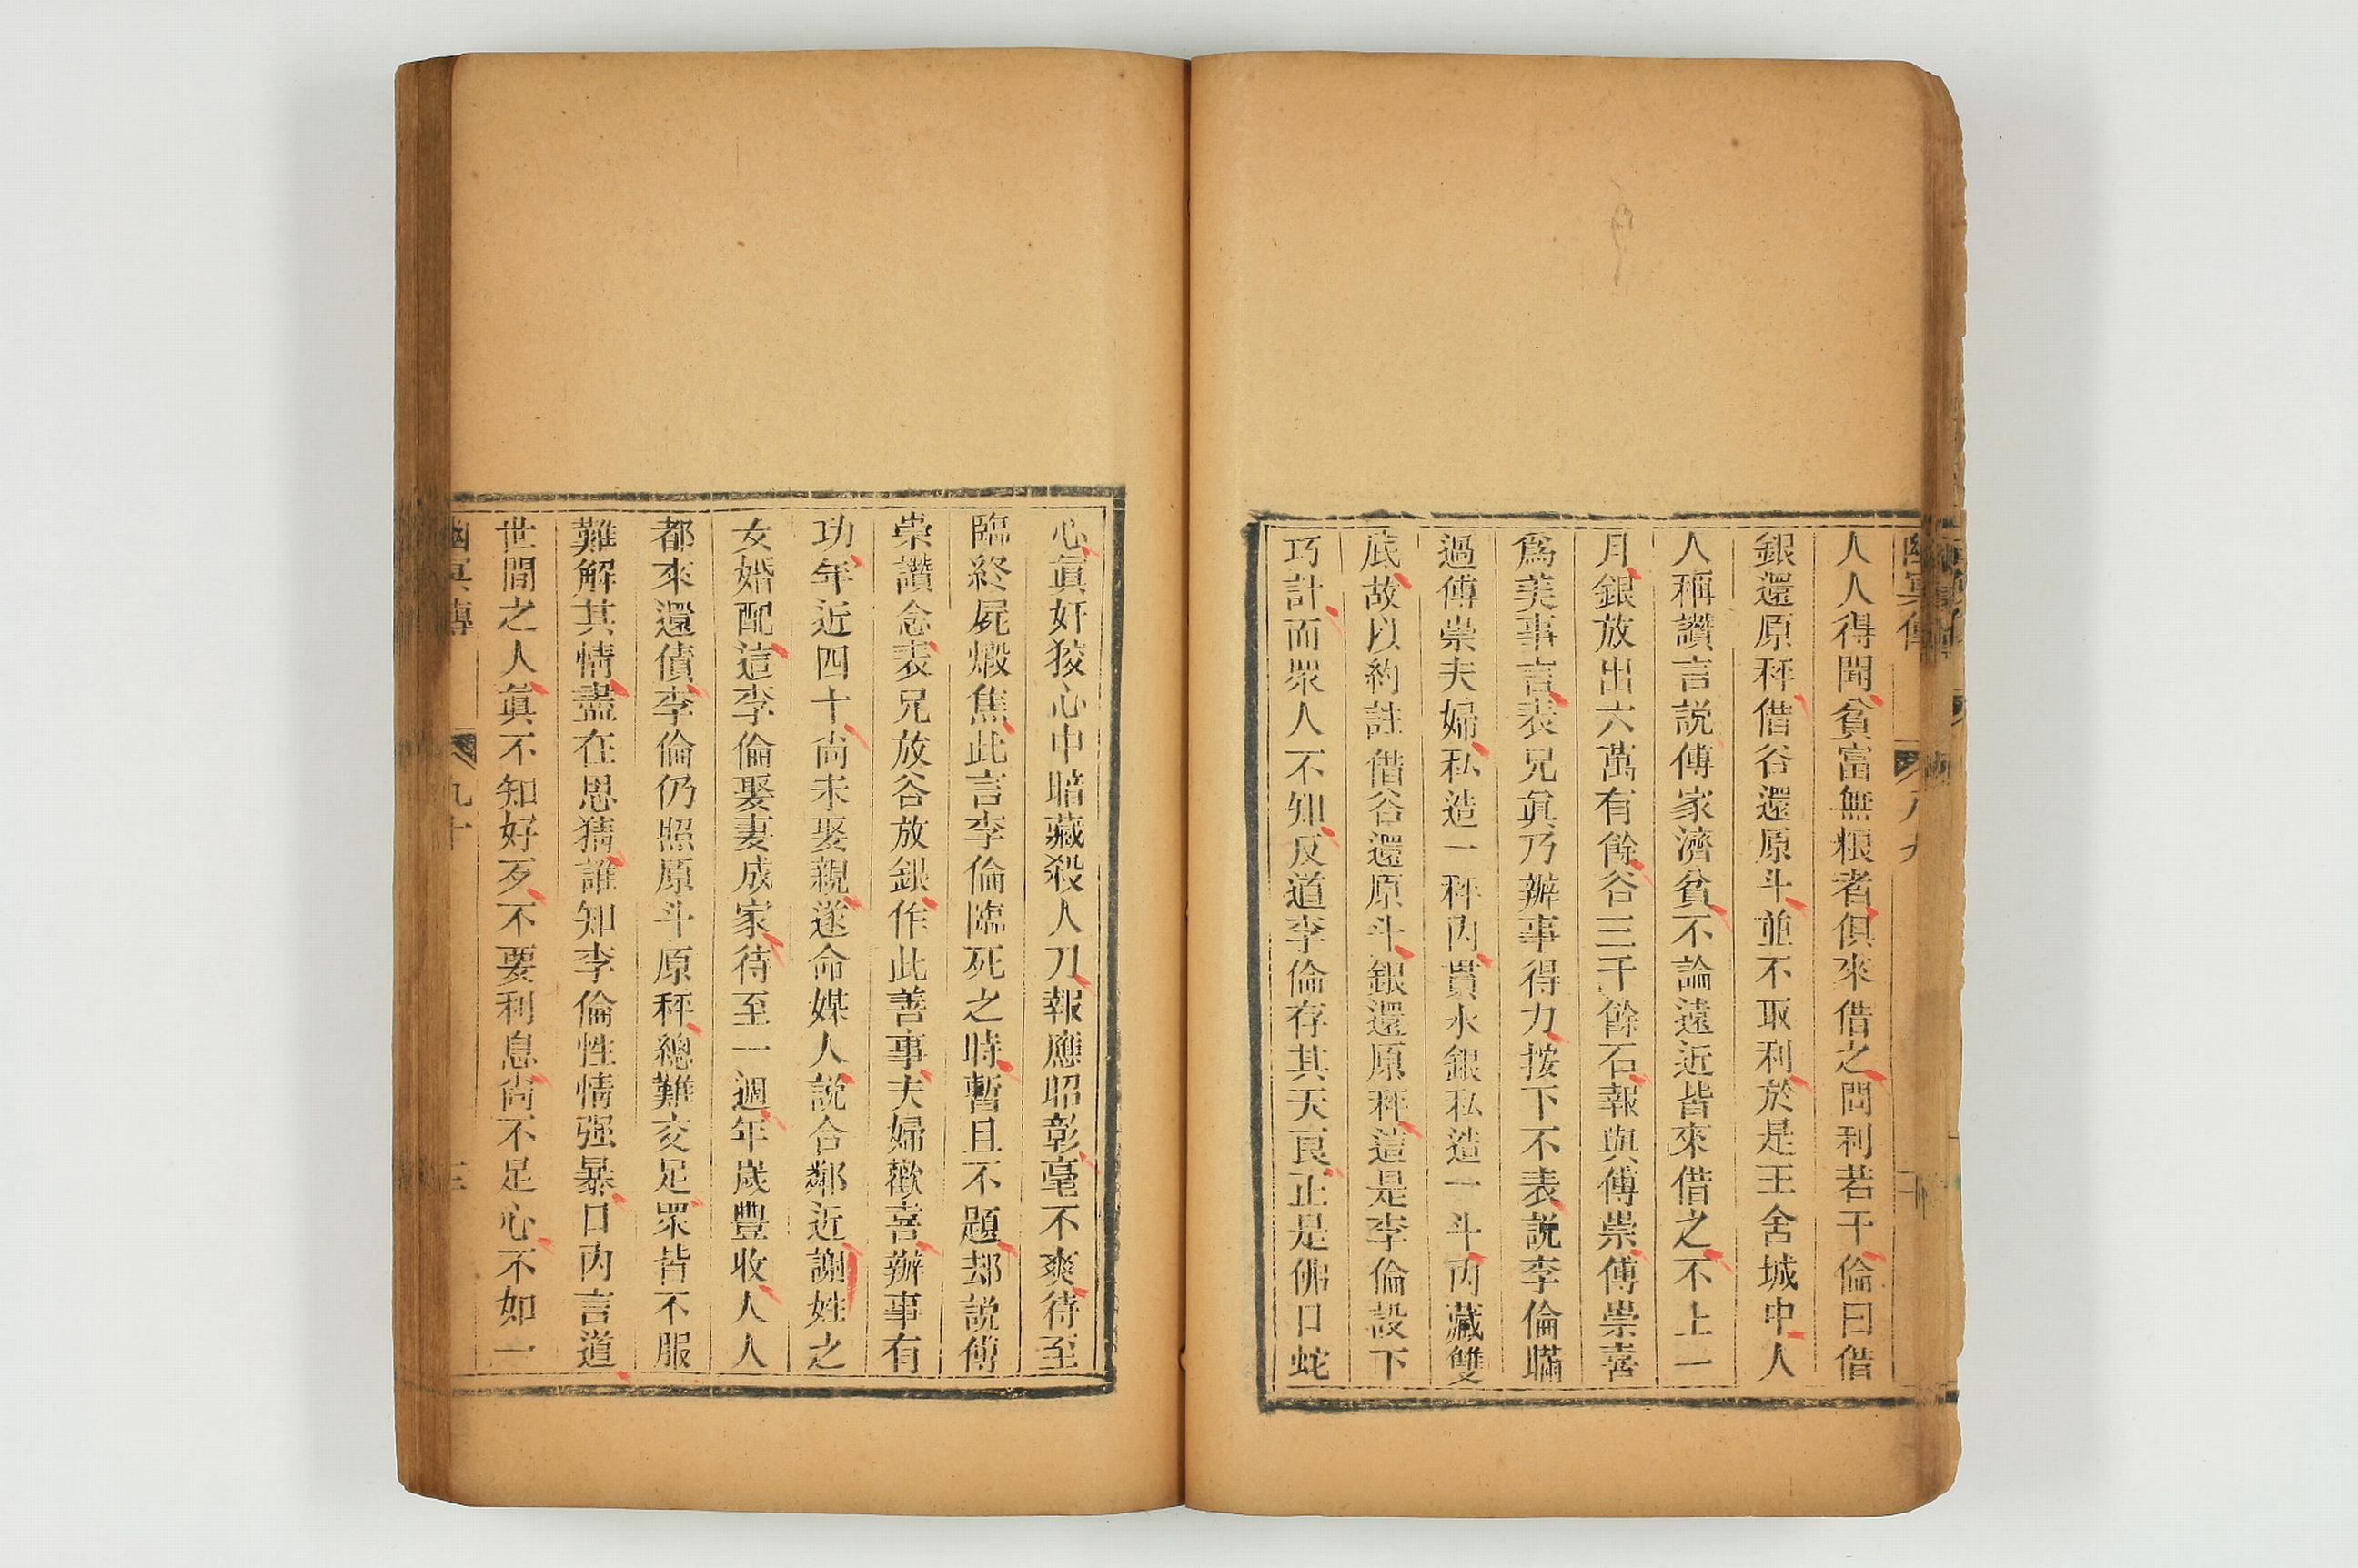 人人得聞貧富無粮者俱來借之問利若干倫曰借
銀還原秤借谷還原斗並不取利於是王舍城中人
人稱讚言説傅家濟貧不論遠近皆來借之不上一
月銀放出六萬有餘谷三千餘石報與傅崇傅崇喜
爲美事言表兄眞乃辦事得力按下不表説李倫瞞
過傅崇夫婦私造一秤內貫水銀私造一斗內藏雙
底故以約註借谷還原斗銀還原秤這是李倫設下
巧計而眾人不知反道李倫存其天良正是佛口蛇
心眞奸狡心中暗藏殺人刀報應昭彰毫不爽待至
臨終屍煅焦此言李倫臨死之時暫且不題却説傅
崇讚念表兄放谷放銀作此善事夫婦歡喜辦事有
功年近四十尚未娶親遂命媒人説合鄰近謝姓之
女婚配這李倫娶妻成家待至一週年歲豐收人人
都來還債李倫仍照原斗原秤總難交足眾皆不服
難解其情盡在思猜誰知李倫性情强暴口內言道
世間之人眞不知好歹不要利息尚不足心不如一
幽冥傳 九十